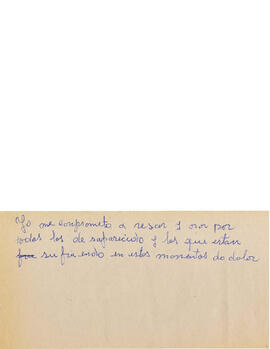 Yo me comprometo a resar 1 ora por
todas las de saparicido y las que estan
su fra endo en estos momentos do dolor